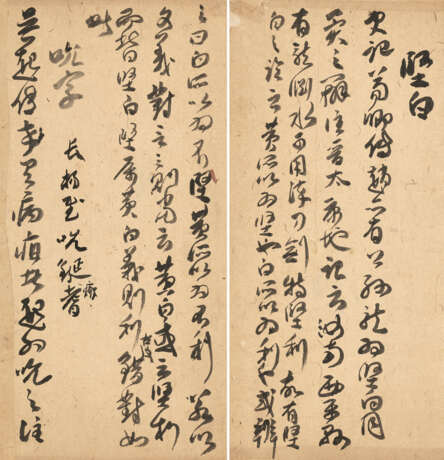 堅白
史記荀卿傳趙亦有公孫龍為堅白同
異之辯注晉太康地記云汝南西平縣
有龍淵水可用淬刀劍特堅利故有堅
白之論云黃所以為堅也白所以為利也或辯
之曰白所以為不堅黃所以為不利若以
文義對言之則當云黃白或云堅利
堅白黃白義則利錯對如
此
吮字
長楊賦吮鋋瘢耆
吳起傳卒有病疽者起為吮之注